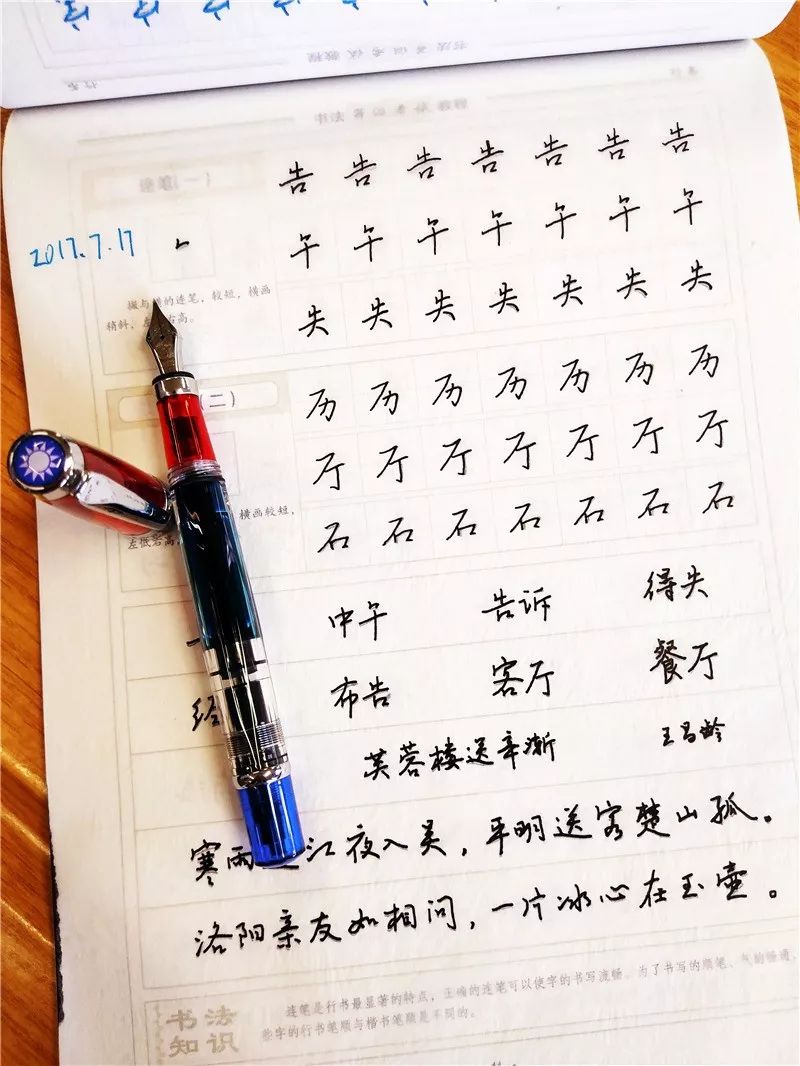 连笔(一)
告 告 告 告 告 告 告
2017.7.17
午 午 午 午 午 午 午
撇与 的连笔，较短，横画
稍斜， 右高。
失 失 失 失 失 失 失
(二)
历 历 历 历 历 历 历
厅 厅 厅 厅 厅 厅 厅
横画较短，
左低右高，
石 石 石 石 石 石 石
中午 告诉 得失
布告 客厅 餐厅
芙蓉楼送辛渐 王昌龄
寒雨 江夜入吴，平明送客楚山孤。
洛阳亲友如相问，一片冰心在玉壶。
书法
知识
连笔是行书最显著的特点，正确的连笔可以使字的书写流畅。为了书写的顺笔、气韵畅通，
些字的行书笔顺与楷书笔顺是不同的。